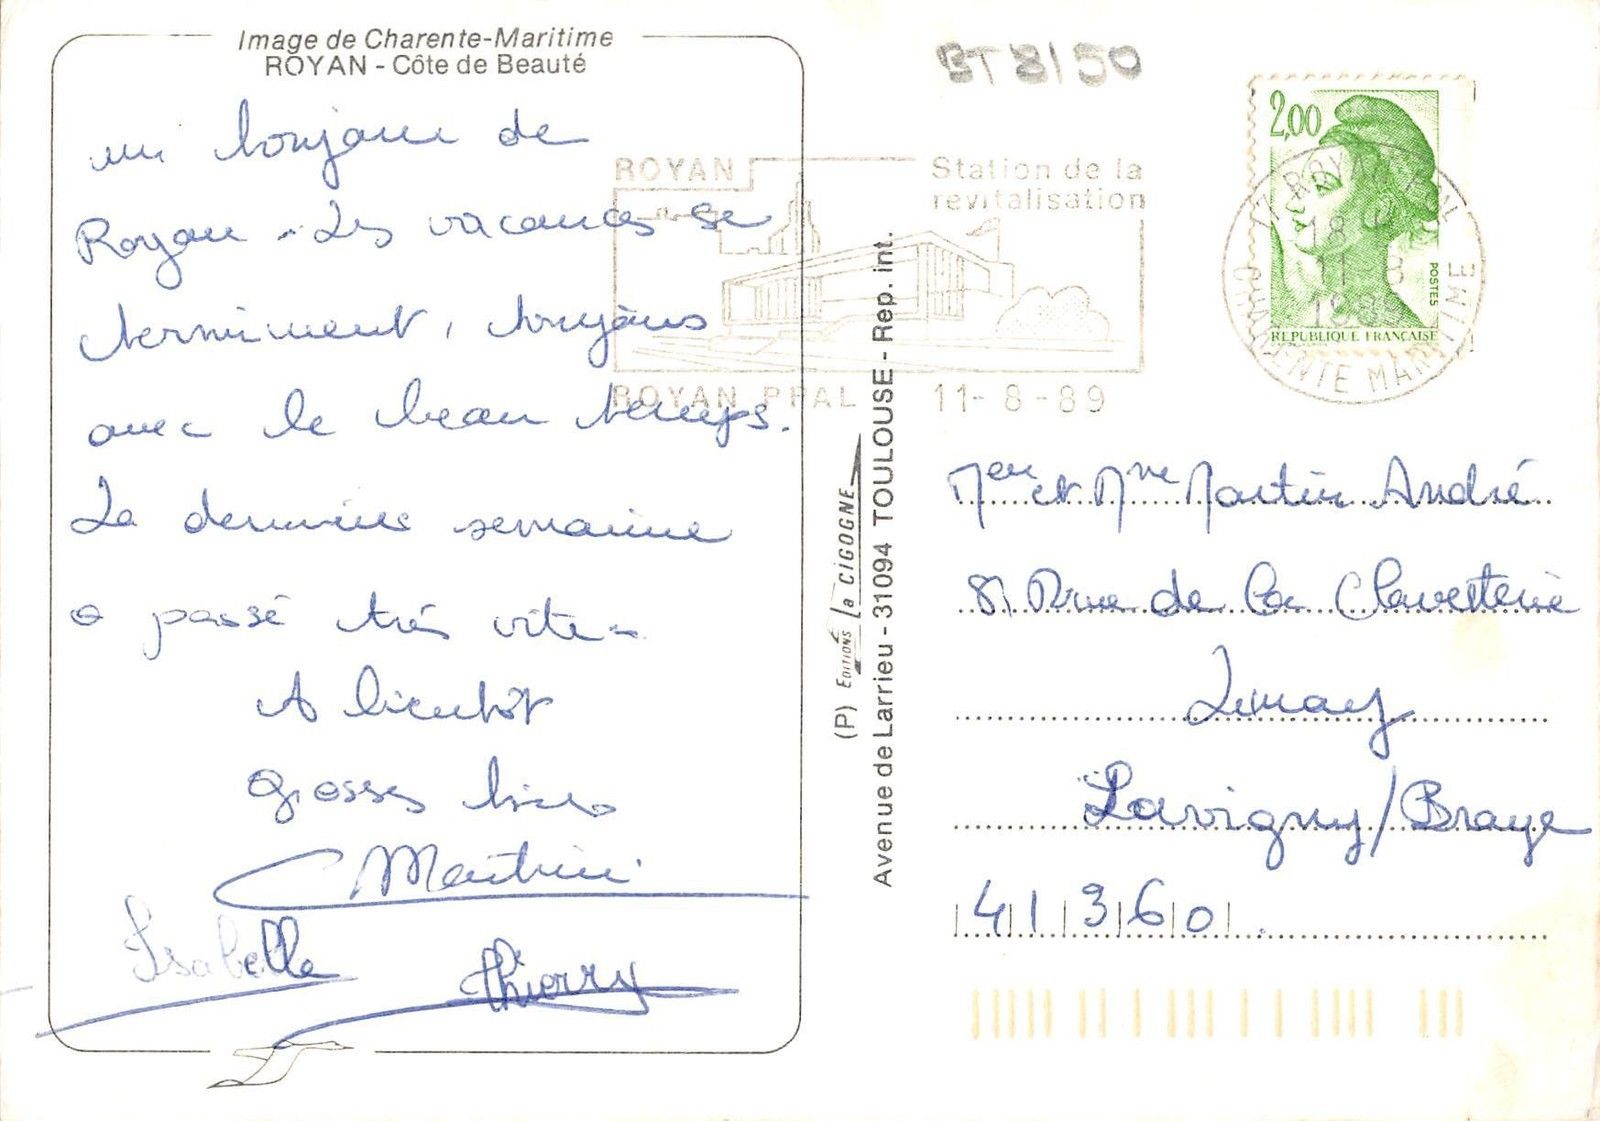 Image de Charente-Maritime
ROYAN - Côte de Beauté
un bonjour de
Royan. Les vacances se
terminent, toujours
avec le beau temps.
La dernière semaine
a passé très vite.
A bientôt
Grosses bises
Martine
Isabelle
Thierry
BT 8150
ROYAN
Station de la
revitalisation
ROYAN PPAL 11-8-89
2,00
POSTES
REPUBLIQUE FRANÇAISE
17 ROYAN PPAL
18 H
11-8
1989
CHARENTE MARITIME
(P) EDITIONS la CIGOGNE
Avenue de Larrieu - 31094 TOULOUSE - Rep. int.
Mr et Mme Martin André
81 Rue de la
Lavigny/Braye
41360.